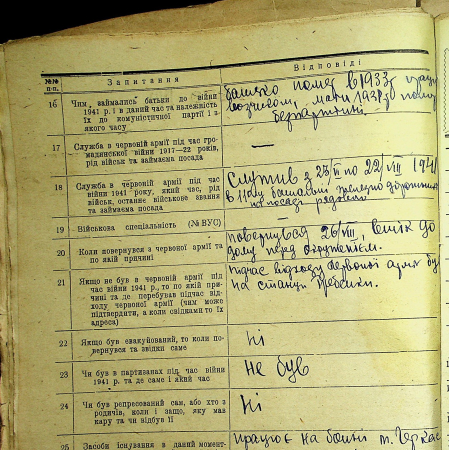 №№ п-п.
Запитання
Відповіді
16
Чим займались батьки до війни
1941 р. і в даний час та належність
їх до комуністичної партії і з
якого часу
батько помер в 1933 р
мати 1938 р.
безпартійні
17
Служба в червоній армії під час гро-
мадянської війни 1917—22 років,
рід військ та займаєма посада
—
18
Служба в червоній армії під час
війни 1941 року, який час, рід
військ, останнє військове звання
та займаєма посада
Служив з 23/ по 22/VIII 1941
в батальоні
на посаді рядового
19
Військова спеціальність (№ВУС)
20
Коли повернувся з червоної армії та
по якій причині
повернувся 26/VIII, до
дому перед
21
Якщо не був в червоній армії під
час війни 1941 р., то по якій при-
чині та де перебував підчас від-
ходу червоної армії (чим може
підтвердити, а коли свідками то їх
адреса)
підчас відходу червоної армії був
на станції
22
Якщо був евакуйований, то коли по-
вернувся та звідки саме
Ні
23
Чи був в партизанах під час війни
1941 р. та де саме і який час
Не був
24
Чи був репресований сам, або хто з
родичів, коли і защо, яку мав
кару та чи відбув її
Ні
25
Засоби існування в даний момент-
працює на м. Черкас